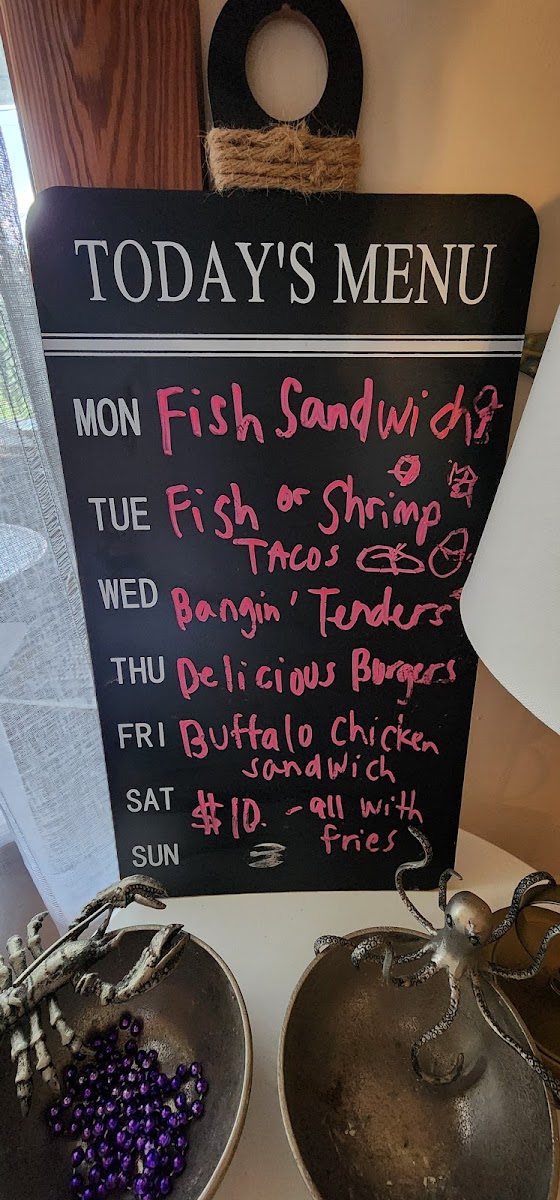 TODAY'S MENU
MON Fish Sandwich
TUE Fish or Shrimp
TACOS
WED Bangin' Tenders
THU Delicious Burgers
FRI Buffalo Chicken
sandwich
SAT $10. - all with
fries
SUN